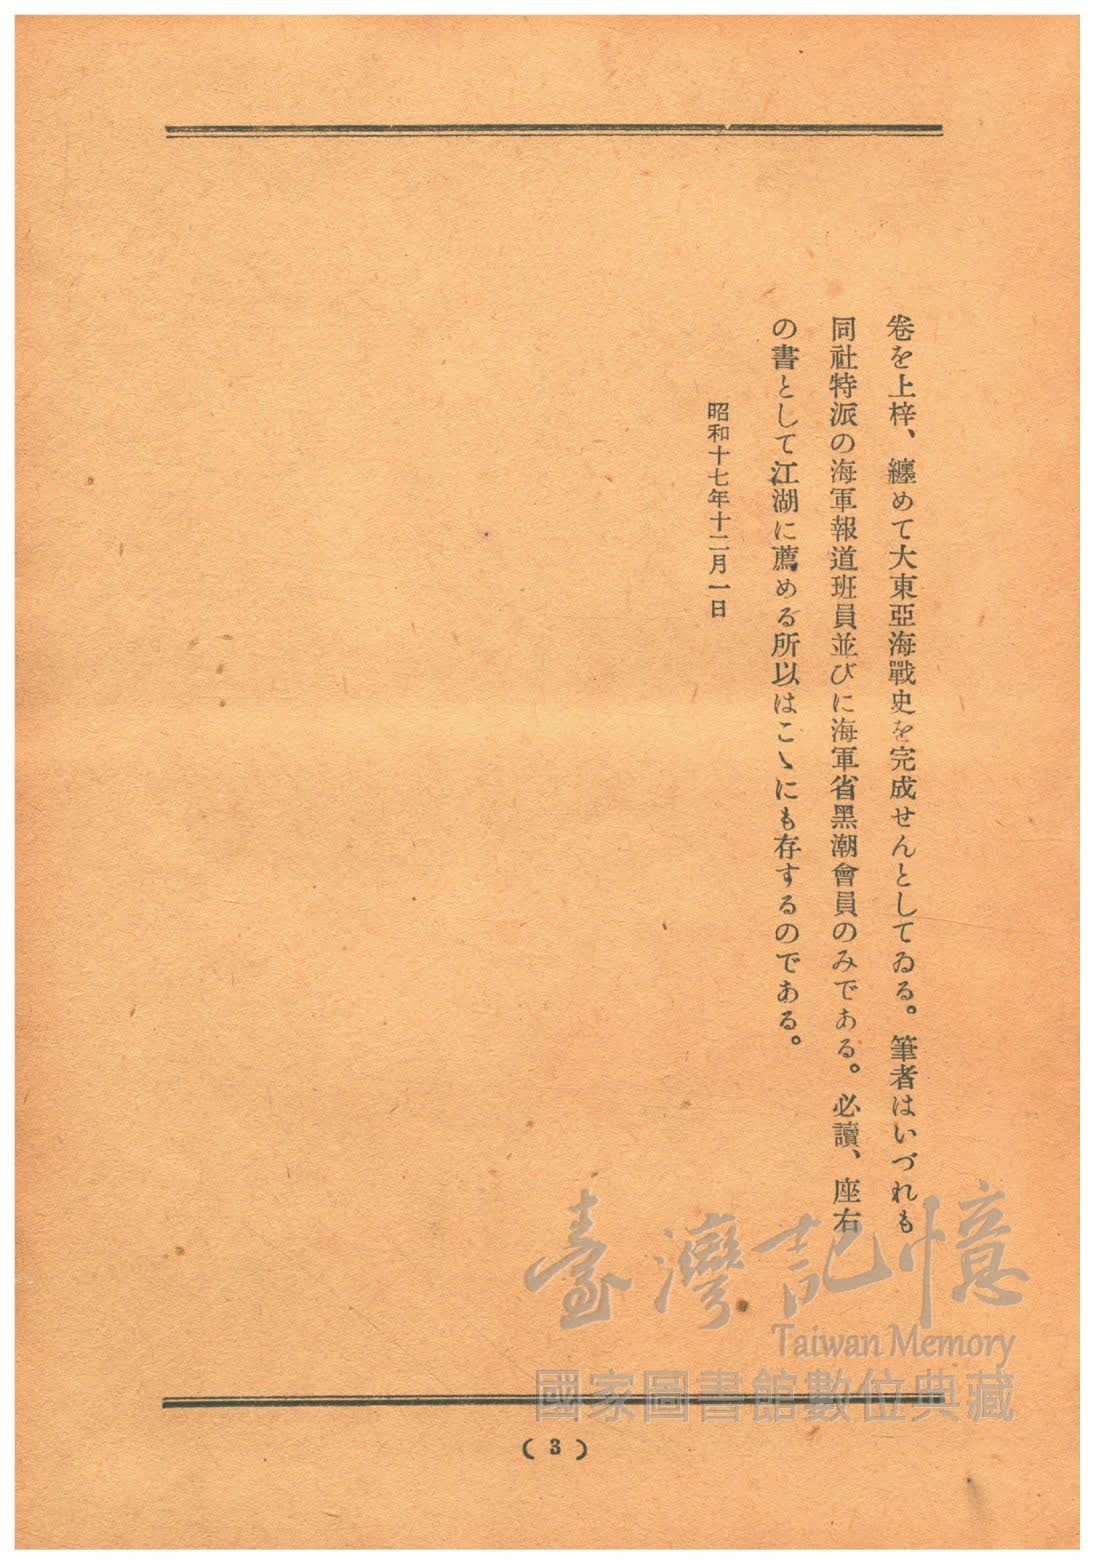 卷を上梓、纏めて大東亞海戰史を完成せんとしてゐる。筆者はいづれも
同社特派の海軍報道班員並びに海軍省黑潮會員のみである。必讀、座右
の書として江湖に薦める所以はこゝにも存するのである。
昭和十七年十二月一日
臺灣記憶
Taiwan Memory
國家圖書館數位典藏
( 3 )